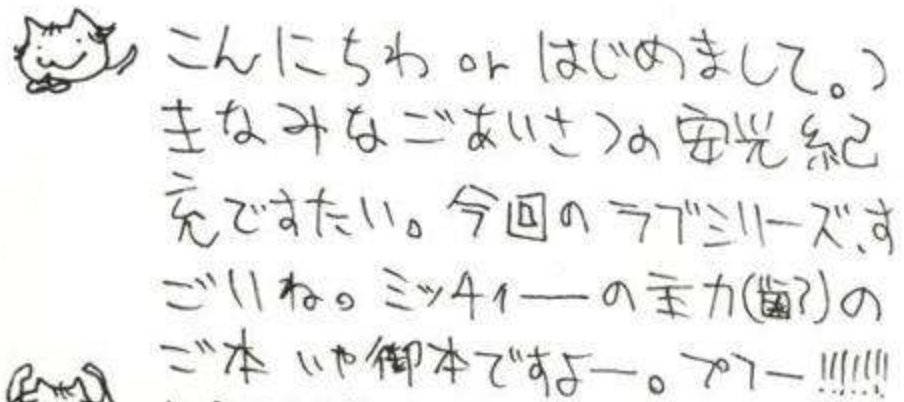 こんにちわ or はじめまして。つ
きなみなごあいさつの安光紀
充ですたい。今回のラブシリーズ、す
ごいね。ミッチィーの主力(歯?)の
ご本 いや御本ですよー。プフー!!!!!!